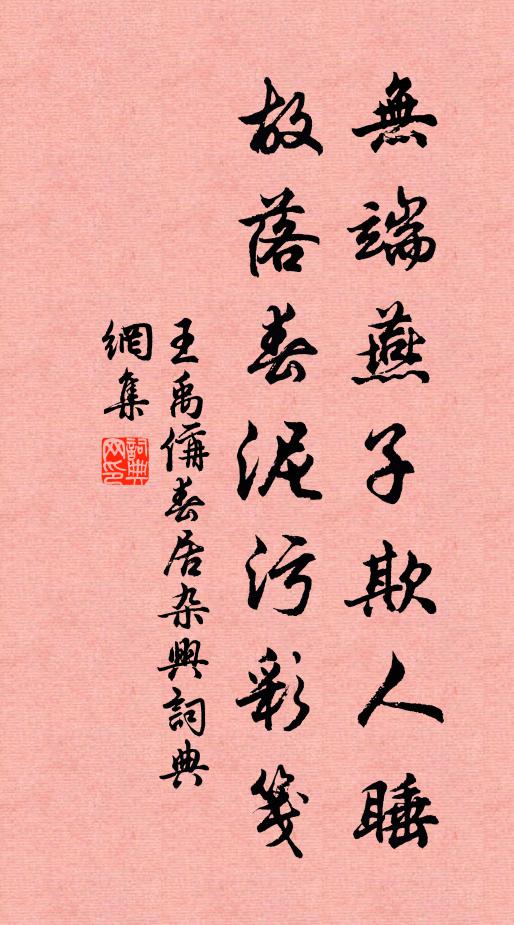 無端燕子欺人睡
故落春泥污彩箋
王禹偁春居杂興詞典
網集
詞典网印